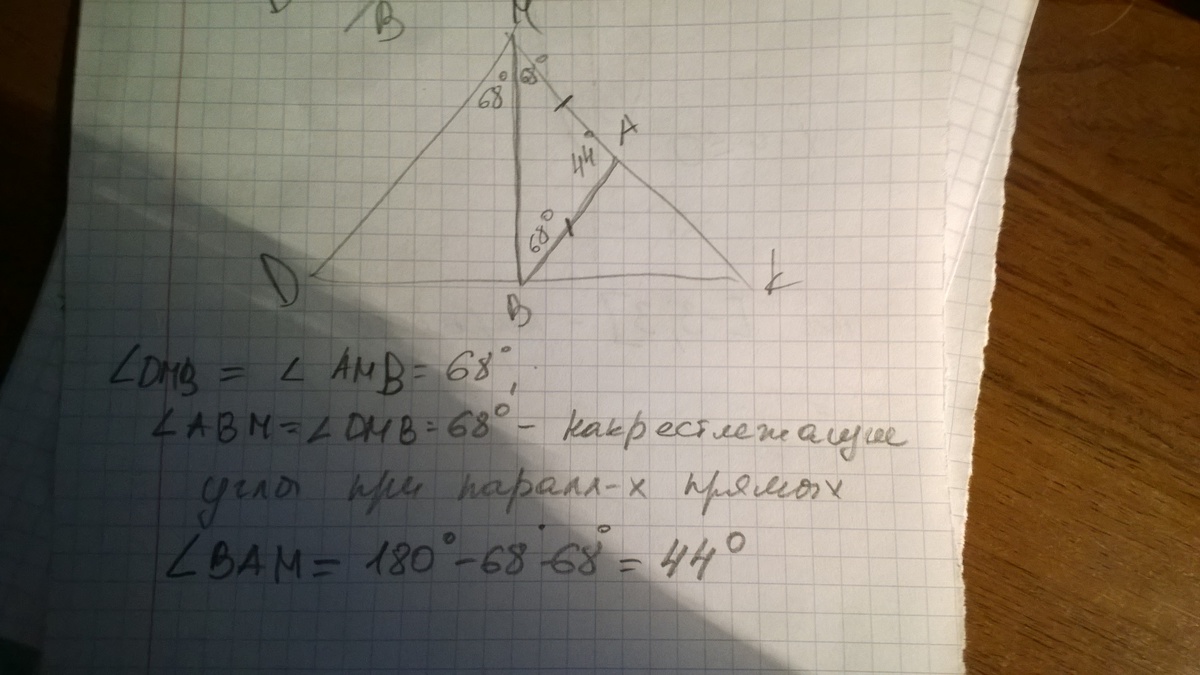 B
M
68° 68°
A
44°
68°
D
B
K
∠DMB = ∠ AMB = 68°,
∠ABM = ∠DMB = 68° - накрестлежащие
углы при паралл-х прямых
∠BAM = 180° - 68° - 68° = 44°